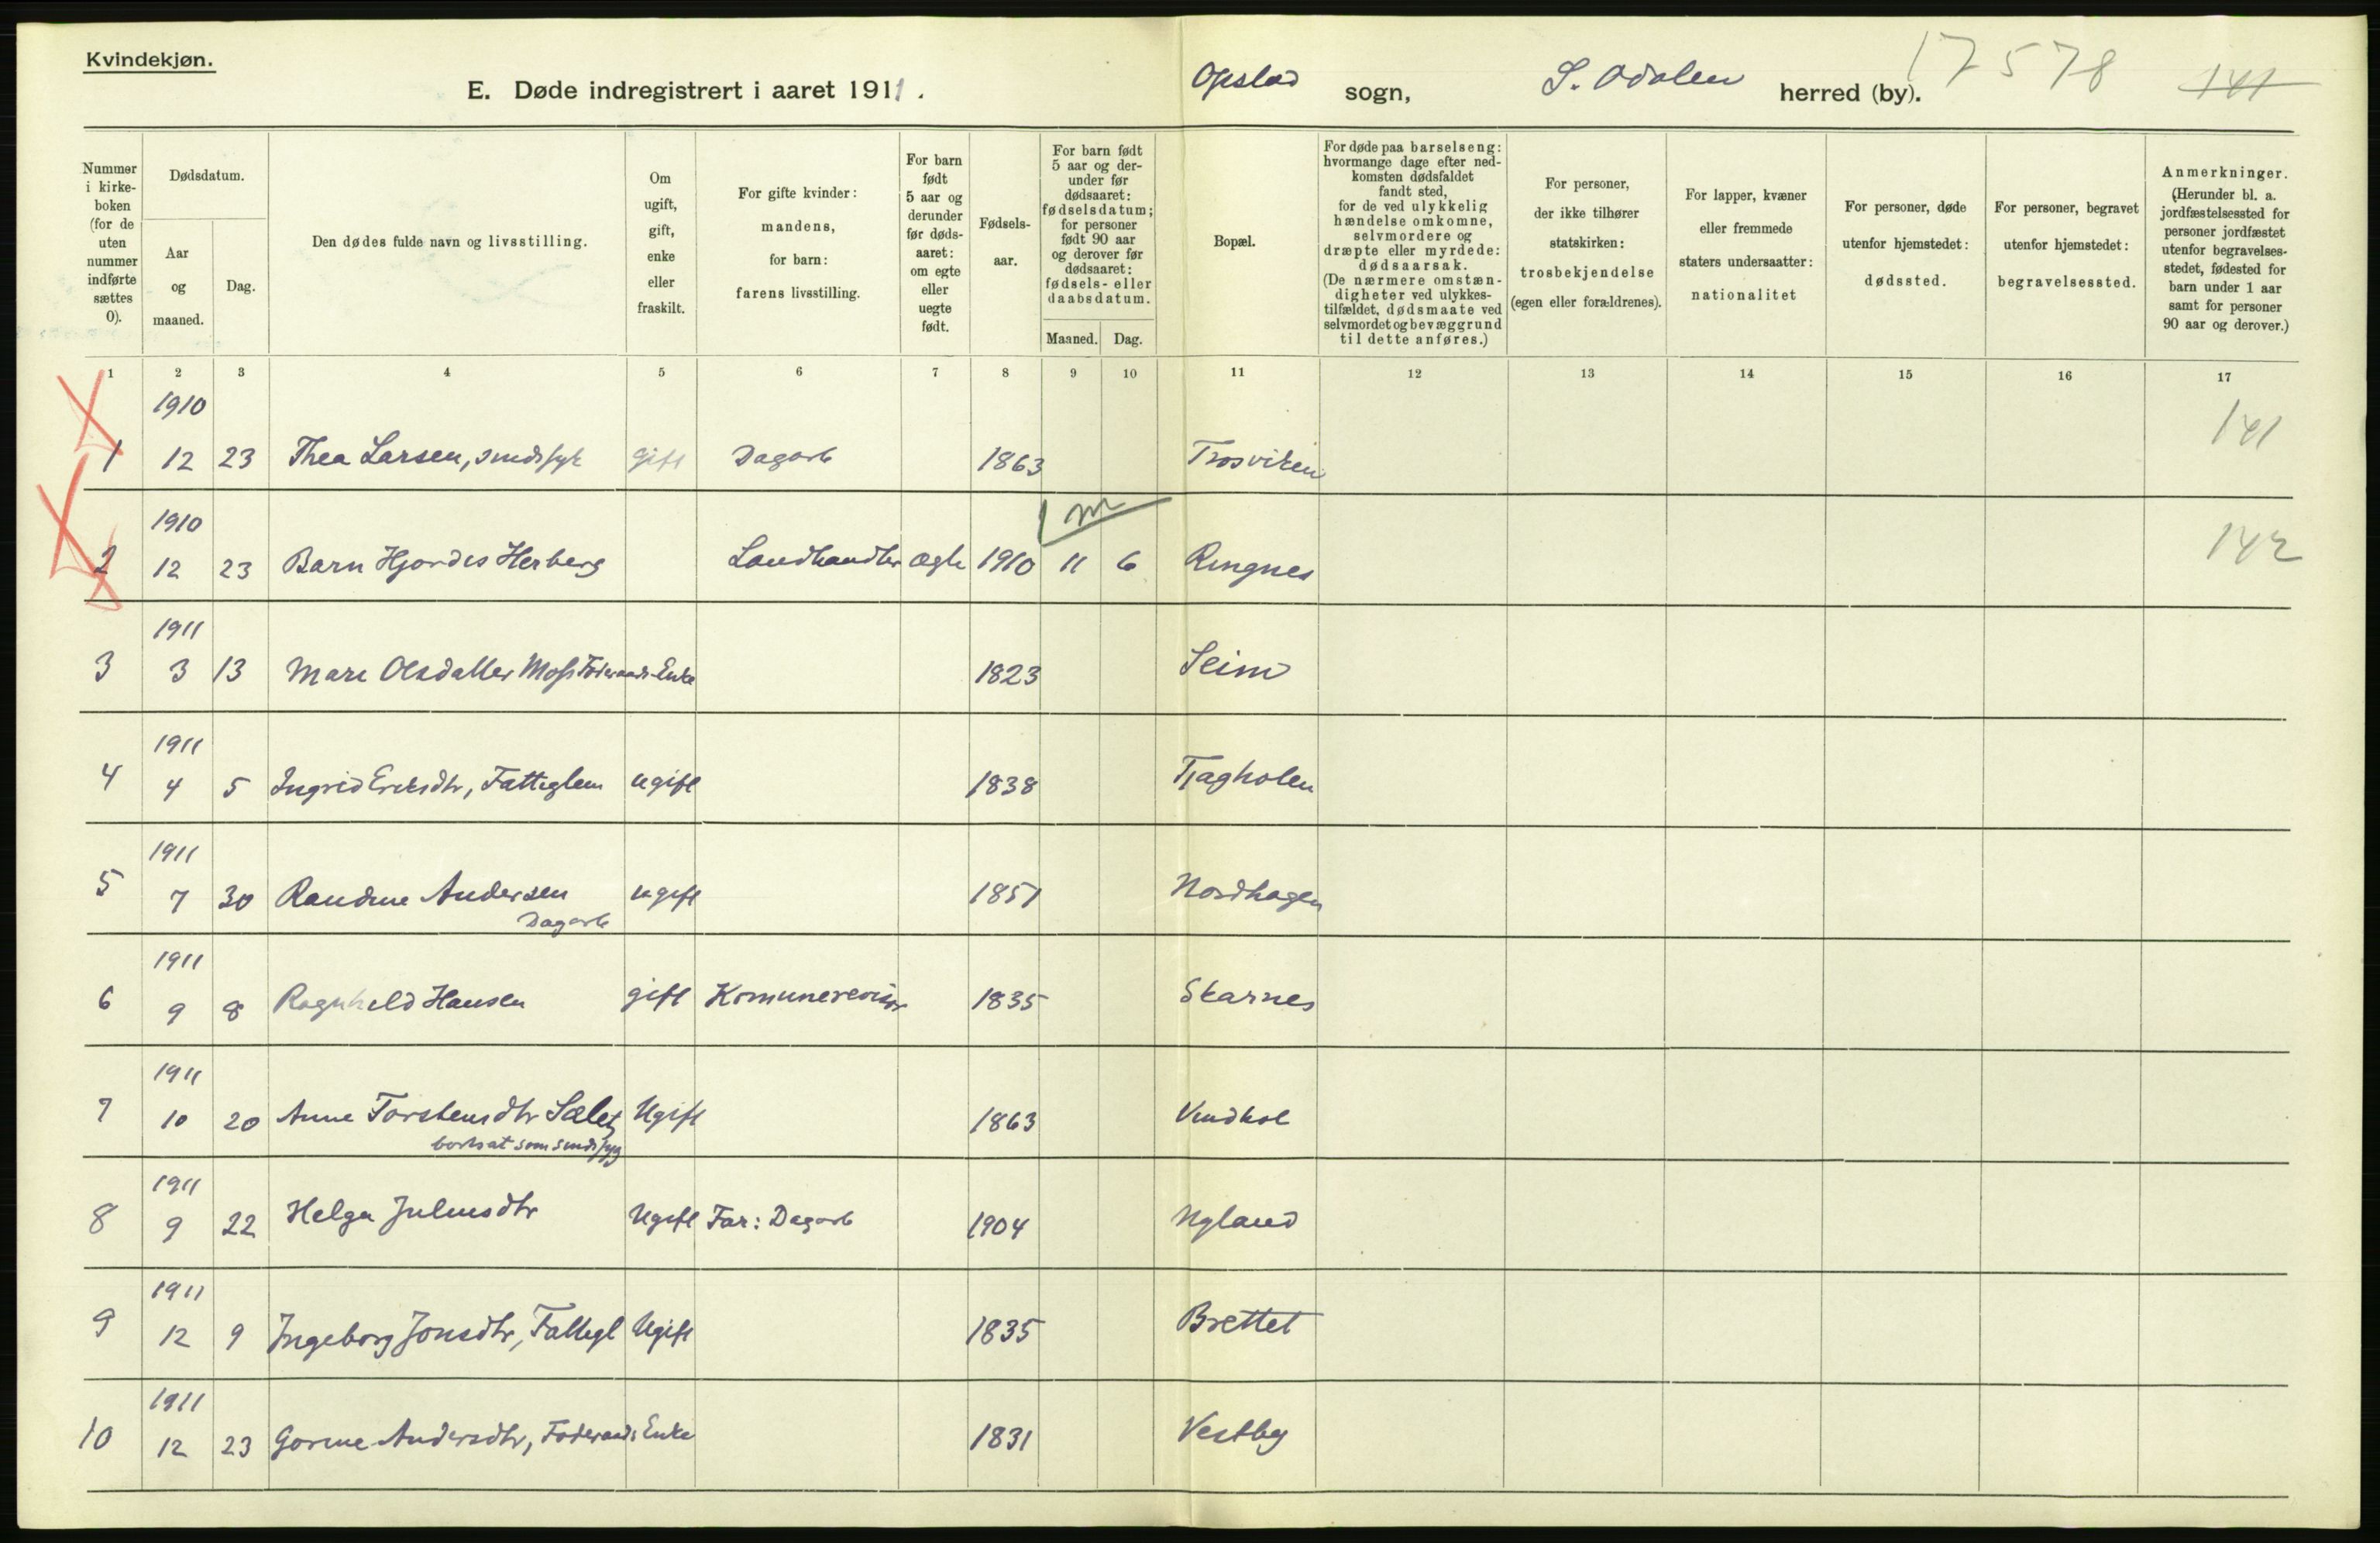 Kvindekjøn.
E. Døde indregistrert i aaret 1911. Opstad sogn, S. Odalen herred (by). 17578 141
Nummer i kirke-boken (for de uten nummer indførte sættes 0).
Dødsdatum.
Aar og maaned.
Dag.
Den dødes fulde navn og livsstilling.
Om ugift, gift, enke eller fraskilt.
For gifte kvinder: mandens, for barn: farens livsstilling.
For barn født 5 aar og derunder før døds-aaret: om egte eller uegte født.
Fødsels-aar.
For barn født 5 aar og der-under før dødsaaret: fødselsdatum; for personer født 90 aar og derover før dødsaaret: fødsels- eller daabsdatum.
Maaned. Dag.
Bopæl.
For døde paa barselseng: hvormange dage efter ned-komsten dødsfaldet fandt sted, for de ved ulykkelig hændelse omkomne, selvmordere og dræpte eller myrdede: dødsaarsak. (De nærmere omstæn-digheter ved ulykkes-tilfældet, dødsmaate ved selvmordet og bevæggrund til dette anføres.)
For personer, der ikke tilhører statskirken: trosbekjendelse (egen eller forældrenes).
For lapper, kvæner eller fremmede staters undersaatter: nationalitet
For personer, døde utenfor hjemstedet: dødssted.
For personer, begravet utenfor hjemstedet: begravelsessted.
Anmerkninger. (Herunder bl. a. jordfæstelsessted for personer jordfæstet utenfor begravelses-stedet, fødested for barn under 1 aar samt for personer 90 aar og derover.)
1 2 3 4 5 6 7 8 9 10 11 12 13 14 15 16 17
1910
1 12 23 Thea Larsen, sindssyk gift Dagarb 1863 Trosviken 141
1910 1 m
2 12 23 Barn Hjordis Herberg Landhandler ægte 1910 11 6 Ringnes 142
1911
3 3 13 Mare Olsdatter Moss Føderaads-Enke 1823 Seim
1911
4 4 5 Ingrid Eriksdtr, Fattiglem ugift 1838 Tjagholen
1911
5 7 30 Randine Andersen ugift 1851 Nordhagen
Dagarb
1911
6 9 8 Ragnhild Hansen gift Komunerevisor 1835 Skarnes
1911
7 10 20 Anne Torstensdtr Sælet Ugift 1863 Vindhol
bortsat som sindssyg
1911
8 9 22 Helga Juliusdtr Ugift Far: Dagarb 1904 Nyland
1911
9 12 9 Ingeborg Jonsdtr, Fattigl Ugift 1835 Brettet
1911
10 12 23 Gorine Andersdtr, Føderaads Enke 1831 Vestby